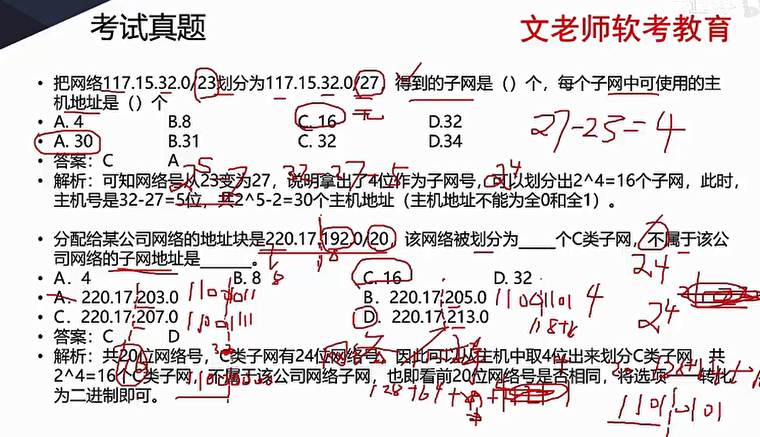 考试真题
文老师软考教育
• 把网络117.15.32.0/23划分为117.15.32.0/27，得到的子网是（）个，每个子网中可使用的主
机地址是（）个
• A. 4 B.8 C. 16 D.32
• A. 30 B.31 C. 32 D.34
27-23=4
• 答案：C A
• 解析：可知网络号从23变为27，说明拿出了4位作为子网号，可以划分出2^4=16个子网，此时，
主机号是32-27=5位，共2^5-2=30个主机地址（主机地址不能为全0和全1）。
• 分配给某公司网络的地址块是220.17.192.0/20，该网络被划分为____个C类子网，不属于该公
司网络的子网地址是______。
• A．4 B. 8 C. 16 D. 32
• A．220.17.203.0 B．220.17.205.0
• C．220.17.207.0 D．220.17.213.0
• 答案：C D
• 解析：共20位网络号，C类子网有24位网络号，因此可以从主机中取4位出来划分C类子网，共
2^4=16个C类子网，不属于该公司网络子网，也即看前20位网络号是否相同，将选项 转化
为二进制即可。